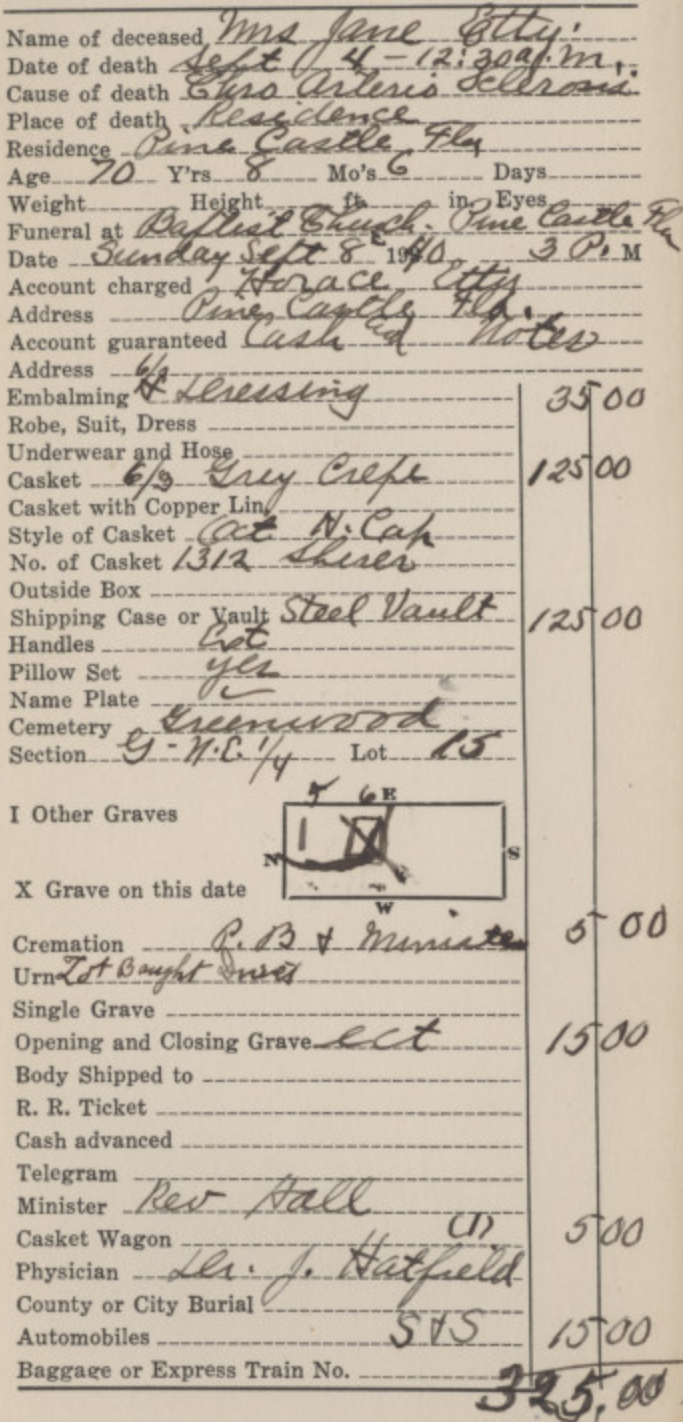 Name of deceased Mrs Jane Etty.
Date of death Sept 4 - 12:30 a.m.
Cause of death Chro Arterio Sclerosis
Place of death Residence
Residence Pine Castle Fla
Age 70 Y'rs 8 Mo's 6 Days
Weight Height ft. in. Eyes
Funeral at Baptist Church. Pine Castle Fla
Date Sunday Sept 8 1940 3 P. M
Account charged Horace Etty
Address Pine Castle Fla.
Account guaranteed Cash Notes
Address
Embalming & Dressing 35 00
Robe, Suit, Dress
Underwear and Hose
Casket 6/3 Grey Crepe 125 00
Casket with Copper Lin.
Style of Casket Oct N. Cap
No. of Casket 1312
Outside Box
Shipping Case or Vault Steel Vault 125 00
Handles
Pillow Set yes
Name Plate ✓
Cemetery Greenwood
Section G - N.E. 1/4 Lot 15
6 E
I Other Graves
N S
X Grave on this date
W
Cremation P. B & Minister 5 00
Urn Lot Bought
Single Grave
Opening and Closing Grave ect 15 00
Body Shipped to
R. R. Ticket
Cash advanced
Telegram
Minister Rev Hall
Casket Wagon (1) 5 00
Physician Dr. J. Hatfield
County or City Burial
Automobiles S & S 15 00
Baggage or Express Train No.
325.00